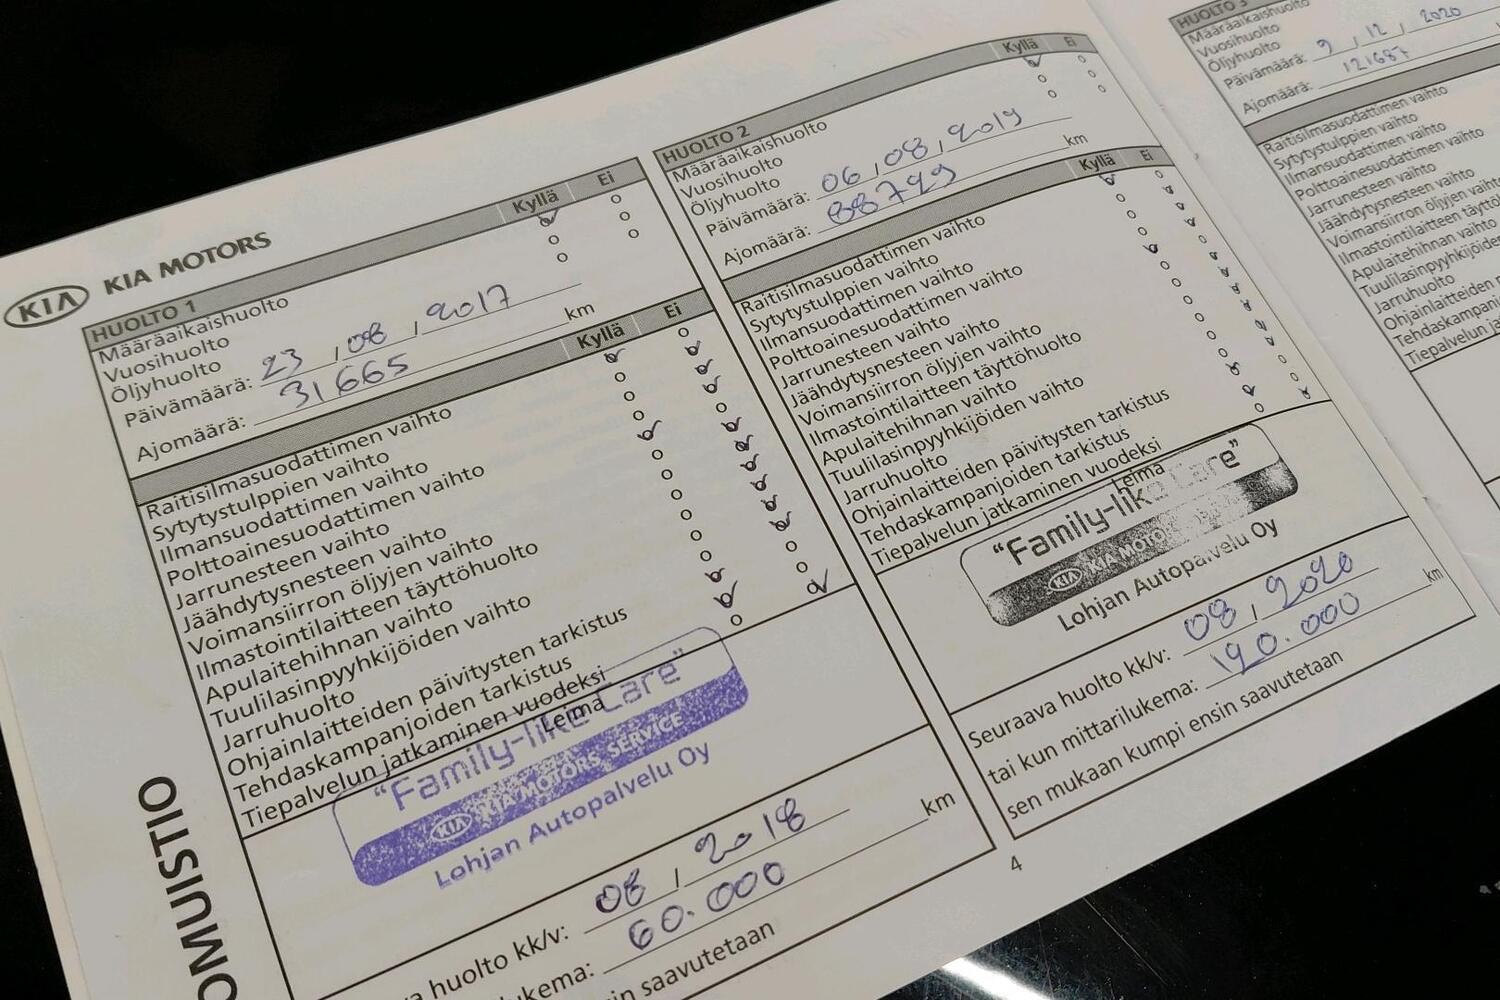 KIA KIA MOTORS
OMUISTIO
HUOLTO 1 Kyllä Ei
Määräaikaishuolto
Vuosihuolto
Öljyhuolto
Päivämäärä: 23 , 08 , 2017
Ajomäärä: 31665 km
Kyllä Ei
Raitisilmasuodattimen vaihto
Sytytystulppien vaihto
Ilmansuodattimen vaihto
Polttoainesuodattimen vaihto
Jarrunesteen vaihto
Jäähdytysnesteen vaihto
Voimansiirron öljyjen vaihto
Ilmastointilaitteen täyttöhuolto
Apulaitehihnan vaihto
Tuulilasinpyyhkijöiden vaihto
Jarruhuolto
Ohjainlaitteiden päivitysten tarkistus
Tehdaskampanjoiden tarkistus
Tiepalvelun jatkaminen vuodeksi
Leima
"Family-like Care"
KIA KIA MOTORS SERVICE
Lohjan Autopalvelu Oy
va huolto kk/v: 08 / 2018
ukema: 60.000 km
in saavutetaan
HUOLTO 2 Kyllä Ei
Määräaikaishuolto
Vuosihuolto
Öljyhuolto
Päivämäärä: 06 , 08 , 2019
Ajomäärä: 88799 km
Kyllä Ei
Raitisilmasuodattimen vaihto
Sytytystulppien vaihto
Ilmansuodattimen vaihto
Polttoainesuodattimen vaihto
Jarrunesteen vaihto
Jäähdytysnesteen vaihto
Voimansiirron öljyjen vaihto
Ilmastointilaitteen täyttöhuolto
Apulaitehihnan vaihto
Tuulilasinpyyhkijöiden vaihto
Jarruhuolto
Ohjainlaitteiden päivitysten tarkistus
Tehdaskampanjoiden tarkistus
Tiepalvelun jatkaminen vuodeksi
Leima
"Family-like Care"
KIA KIA MOTO
Lohjan Autopalvelu Oy
Seuraava huolto kk/v: 08 , 2020
tai kun mittarilukema: 120.000 km
sen mukaan kumpi ensin saavutetaan
4
HUOLTO 3
Määräaikaishuolto
Vuosihuolto
Öljyhuolto
Päivämäärä: 9 , 12 , 2020
Ajomäärä: 121687
Raitisilmasuodattimen vaihto
Sytytystulppien vaihto
Ilmansuodattimen vaihto
Polttoainesuodattimen vaihto
Jarrunesteen vaihto
Jäähdytysnesteen vaihto
Voimansiirron öljyjen vaihto
Ilmastointilaitteen täyttö
Apulaitehihnan vaihto
Tuulilasinpyyhkijöiden
Jarruhuolto
Ohjainlaitteiden
Tehdaskampani
Tiepalvelun jat